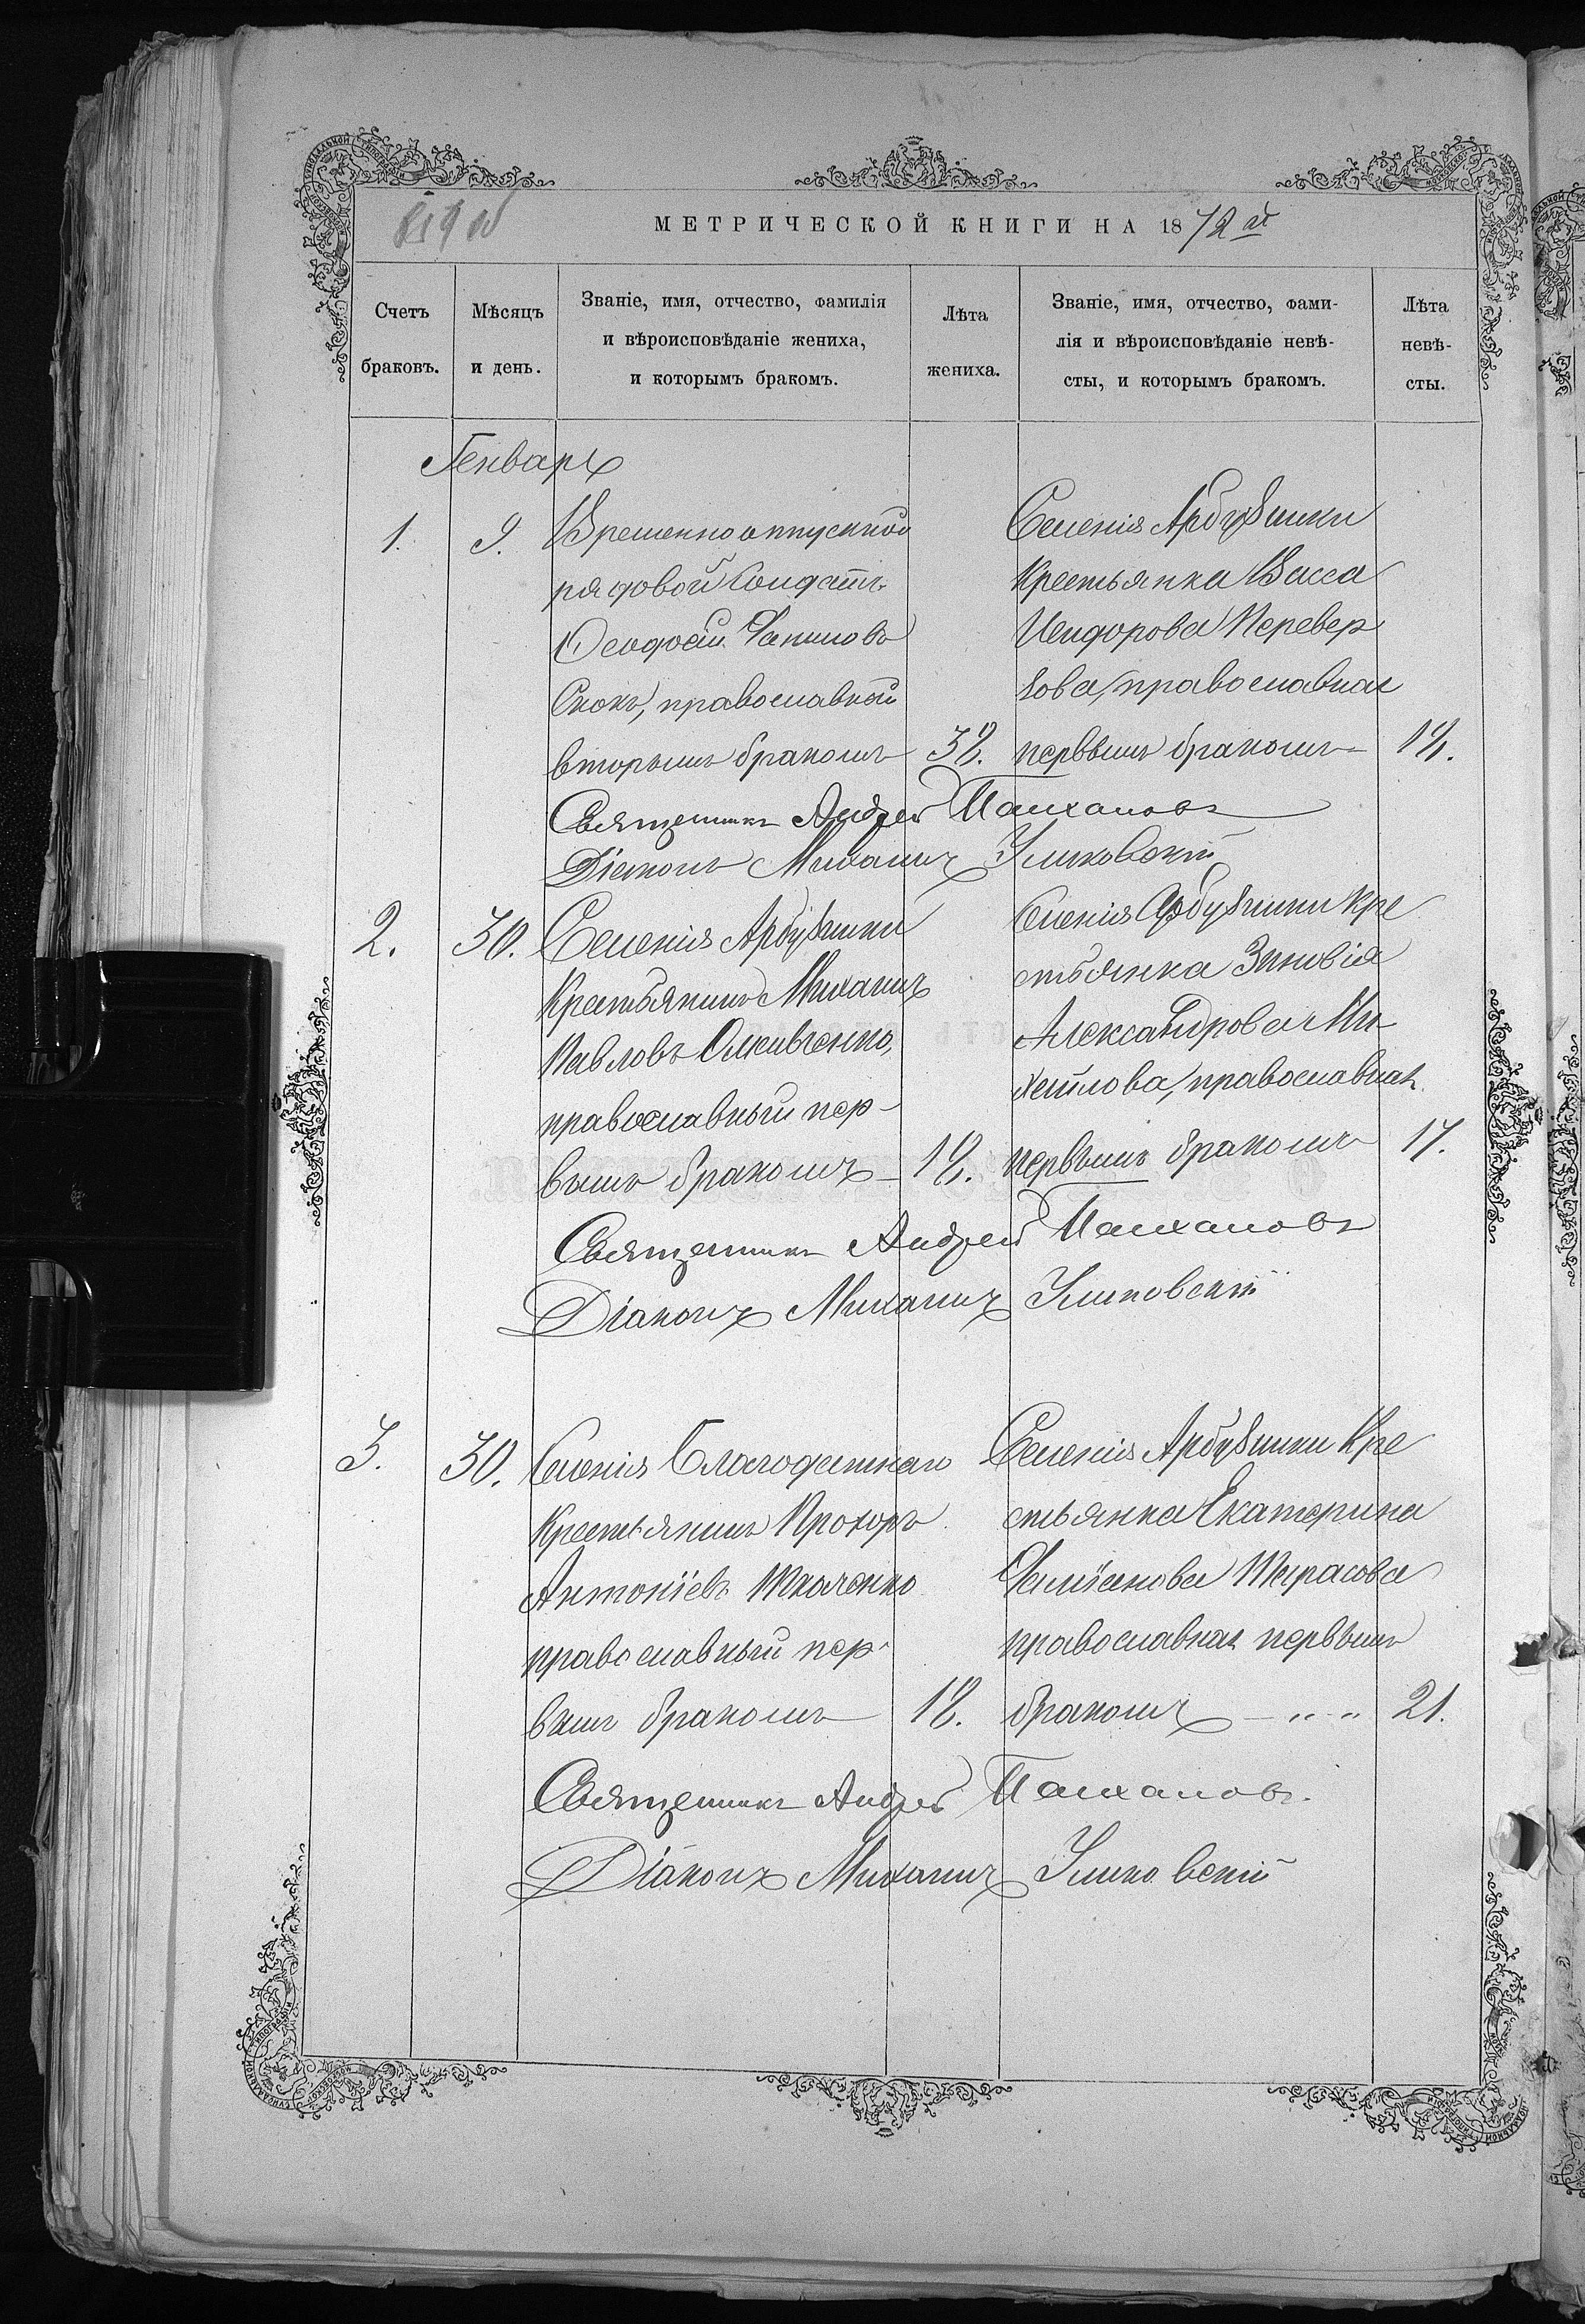 МЕТРИЧЕСКОЙ КНИГИ НА 1872 й
Счетъ браковъ.
Мѣсяцъ и день.
Званіе, имя, отчество, фамилія
и вѣроисповѣданіе жениха,
и которымъ бракомъ.
Лѣта жениха.
Званіе, имя, отчество, фами-
лія и вѣроисповѣданіе невѣ-
сты, и которымъ бракомъ.
Лѣта невѣ-
сты.
Генварь
1. 9.
Временно отпускной
рядовой Солдатъ
Ѳеодосій
Скокъ, православный
вторымъ бракомъ 38.
Селенія Арбузинки
Крестьянка Васса
Исидорова Перевер
зова, православная
первымъ бракомъ 18.
Священникъ Андрей
Діаконъ Михаилъ
2. 30.
Селенія Арбузинки
Крестьянинъ Михаилъ
Павловъ
православный пер-
вымъ бракомъ 18.
Селенія Арбузинки Кре
стьянка Зиновія
Александрова Ми-
хайлова, православная
первымъ бракомъ 17.
Священникъ Андрей
Діаконъ Михаилъ
3. 30.
Селенія Благодатнаго
Крестьянинъ Прохоръ
Антоніевъ Ткаченко
православный пер-
вымъ бракомъ 18.
Селенія Арбузинки Кре
стьянка Екатерина
Даміанова Тарасова
православная первымъ
бракомъ 21.
Священникъ Андрей
Діаконъ Михаилъ